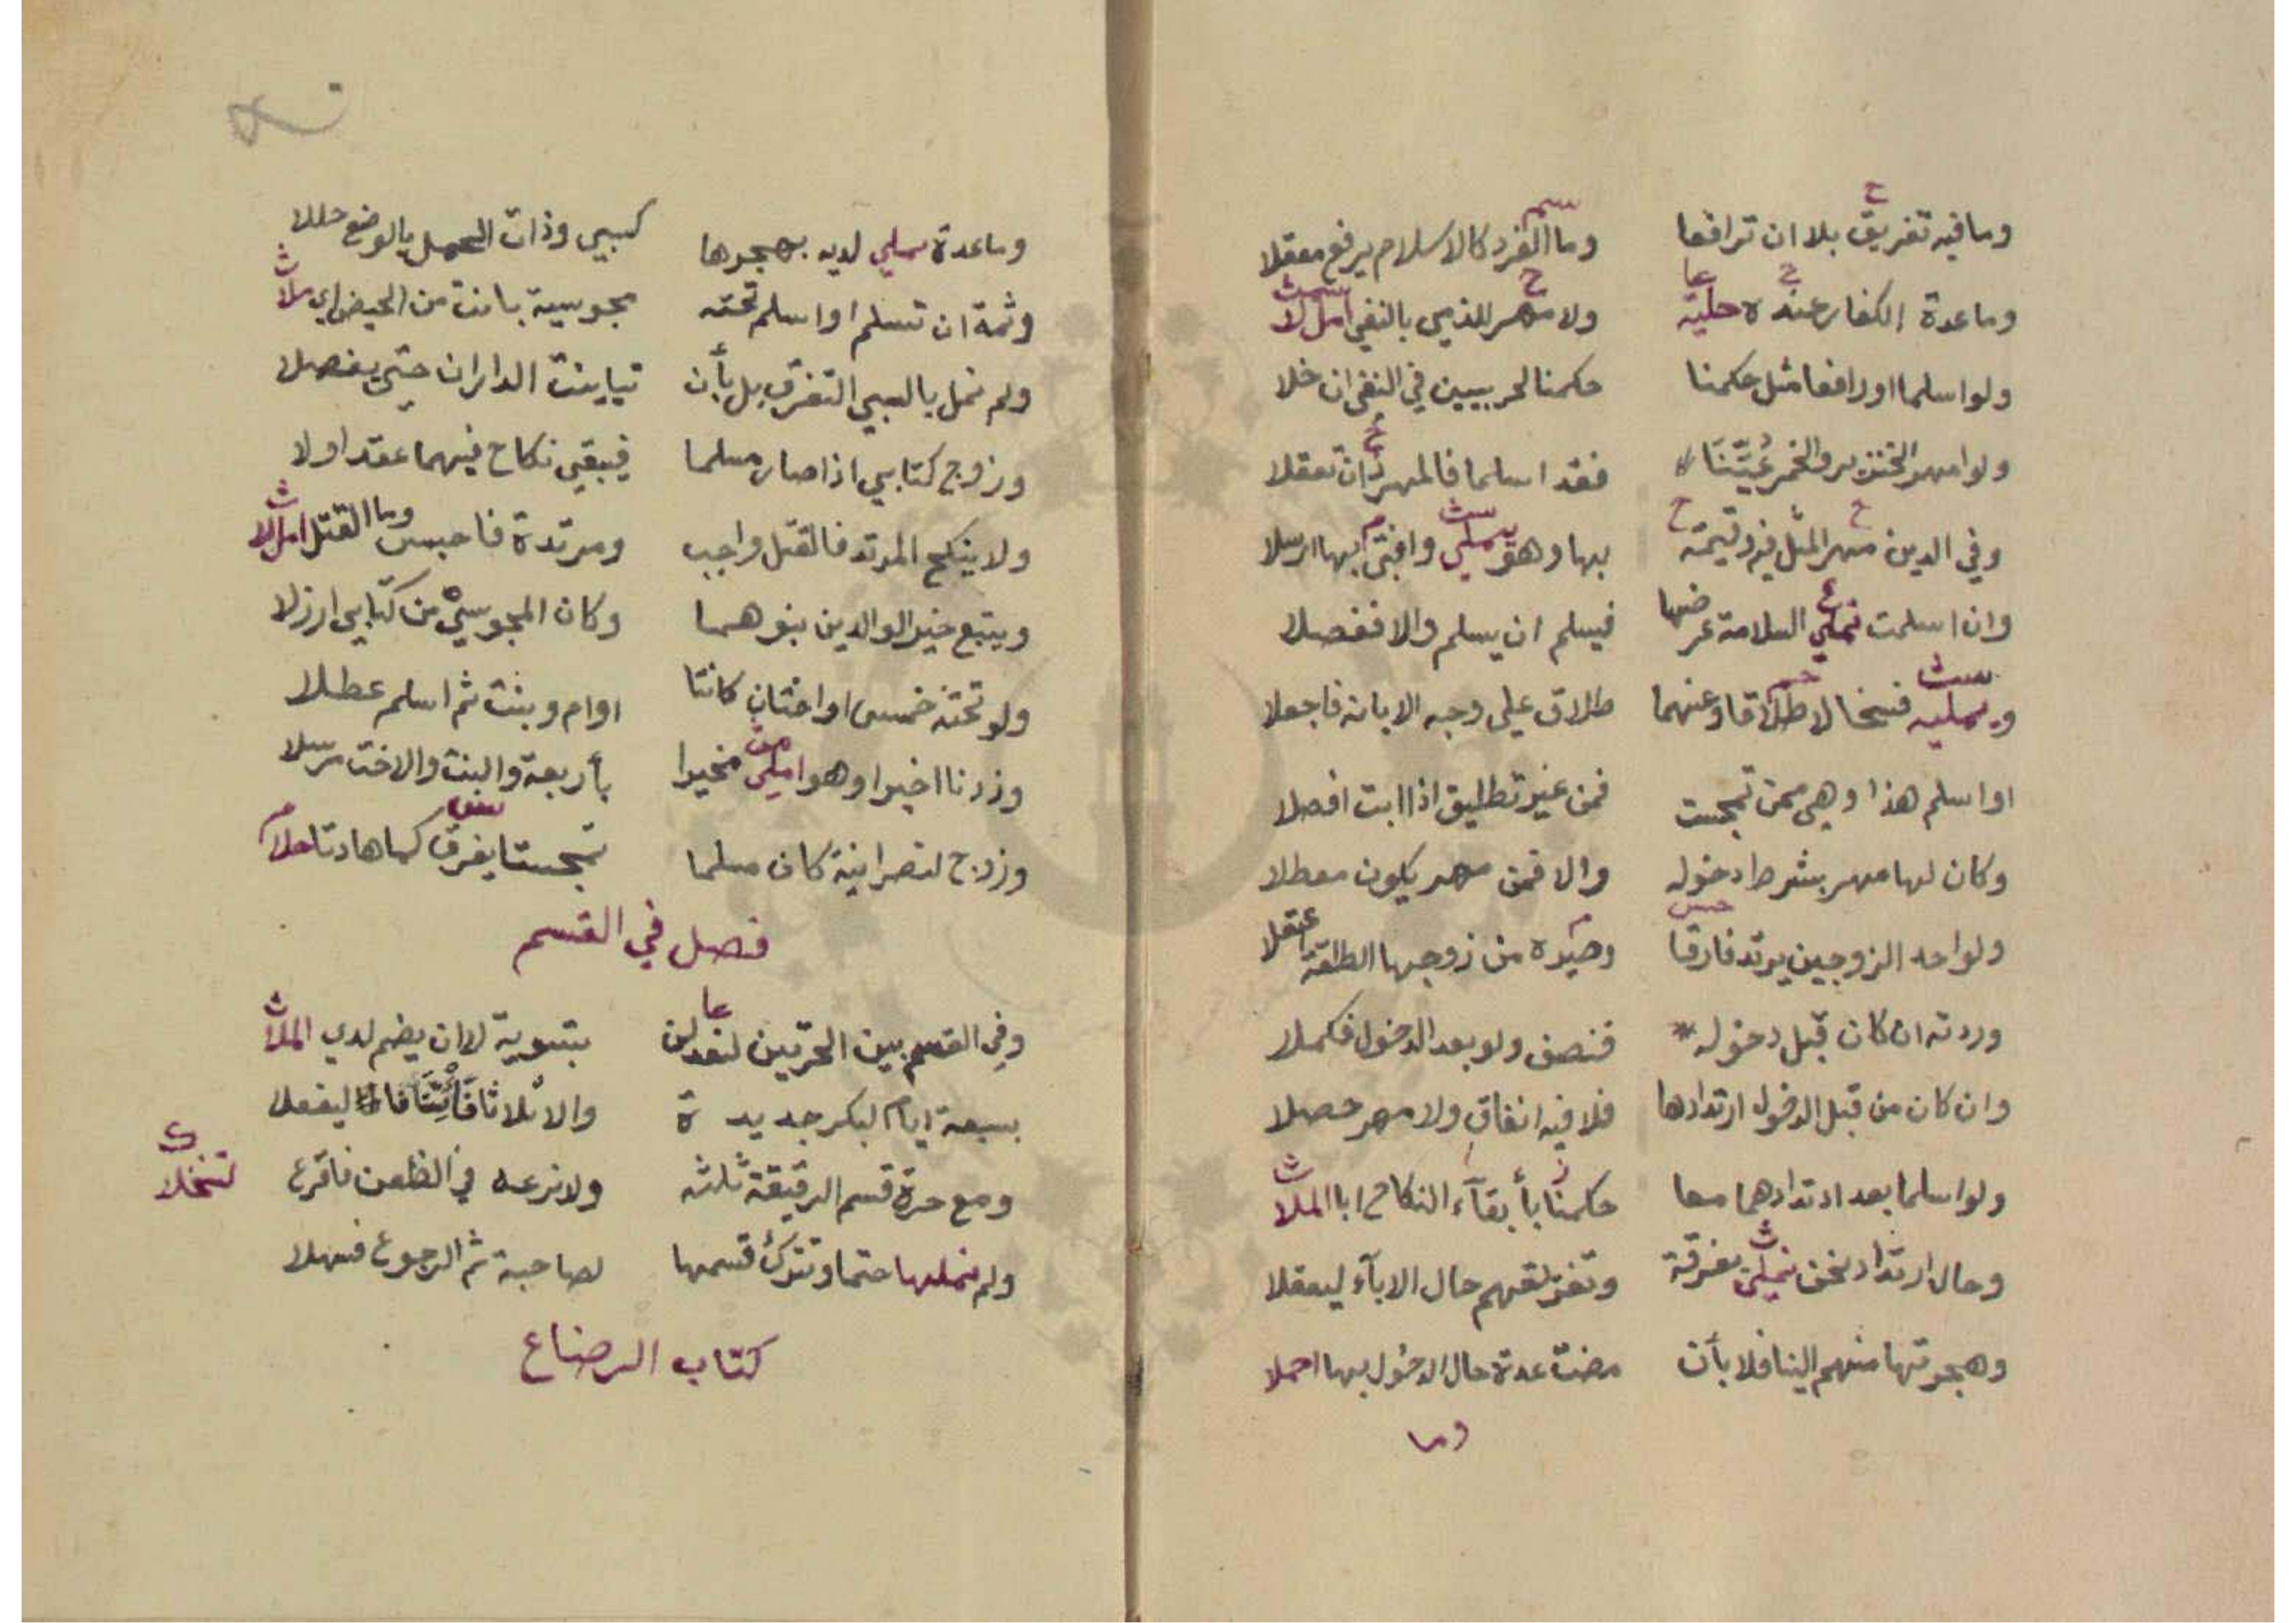 وما فيه تفريق بلا ان ترافعا وما الفرد كالاسلام يرفع معقلا
وما عدة الكفار عنده حلية ولا مهر للذمي بالنفي امل لا
ولو اسلما او رافعا مثل حكمنا حكمنا لحربيين في النفي ان خلا
ولو امهر الخنزير والخمر عُيِّنَا فقد اسلما فالمهر ذان تعقلا
وفي الدين مهر المثل فيه وقيمة بها وهو يملي وافتى بها ارسلا
وان اسلمت نملي السلامة عرضها فيسلم ان يسلم والا ففصلا
ويمليه فسخا لا طلاقا وعنهما طلاق على وجه الابانة فاجعلا
او اسلم هذا وهي ممن تمجست فمن غير تطليق اذا ابت افصلا
وكان لها مهر بشرط دخوله والا فمن مهر يكون معطلا
ولو احد الزوجين يرتد فارقا وصيّره من زوجها الطلقة اعقلا
وردته ان كان قبل دخوله فنصف ولو بعد الدخول فكملا
وان كان من قبل الدخول ارتدادها فلا فيه انفاق ولا مهر حصلا
ولو اسلما بعد ارتدادهما معا حكمنا بأبقاء النكاح ابا الملا
وحال ارتداد نحن نملي بفرقة وتفريقهم حال الاباء ليعقلا
وهجرتها منهم الينا فلا بأن مضت عدة حال الدخول بها احملا
وما
وما عدة يملي لديه بهجرها كسبي وذات الحمل بالوضع حللا
وثمة ان تسلم او اسلم تحته مجوسية بانت من الحيض اي ملا
ولم نمل بالسبي التفرق بل بأن تباينت الداران حتى يفصلا
وزوج كتابي اذا صار مسلما فيبقى نكاح فيهما عقد اولا
ولا ينكح المرتد فالقتل واجب ومرتدة فاحبس وما القتل امل لا
ويتبع خير الوالدين بنوهما وكان المجوسي من كتابي ارزلا
ولو تحته خمس او اختان كانتا او ام وبنت ثم اسلم عطلا
وزدنا اخيرا وهو املى مخيرا بأربعة والبنت والاخت مرسلا
وزوج لنصرانية كان مسلما تمجستا يفرق كما هادتا حلا
فصل في القسم
وفي القسم بين الحرتين لنعدلن بتسوية لا ان يضم لدي الملا
بسبعة ايام لبكر جديدة والا ثلاثا ليفعلا
ومع حرة قسم الرقيقة ثلثه ولا نرعه في الظعن فاقرع لتنخلا
ولم نملها حتما وتترك قسمها لصاحبة ثم الرجوع فسهلا
كتاب الرضاع